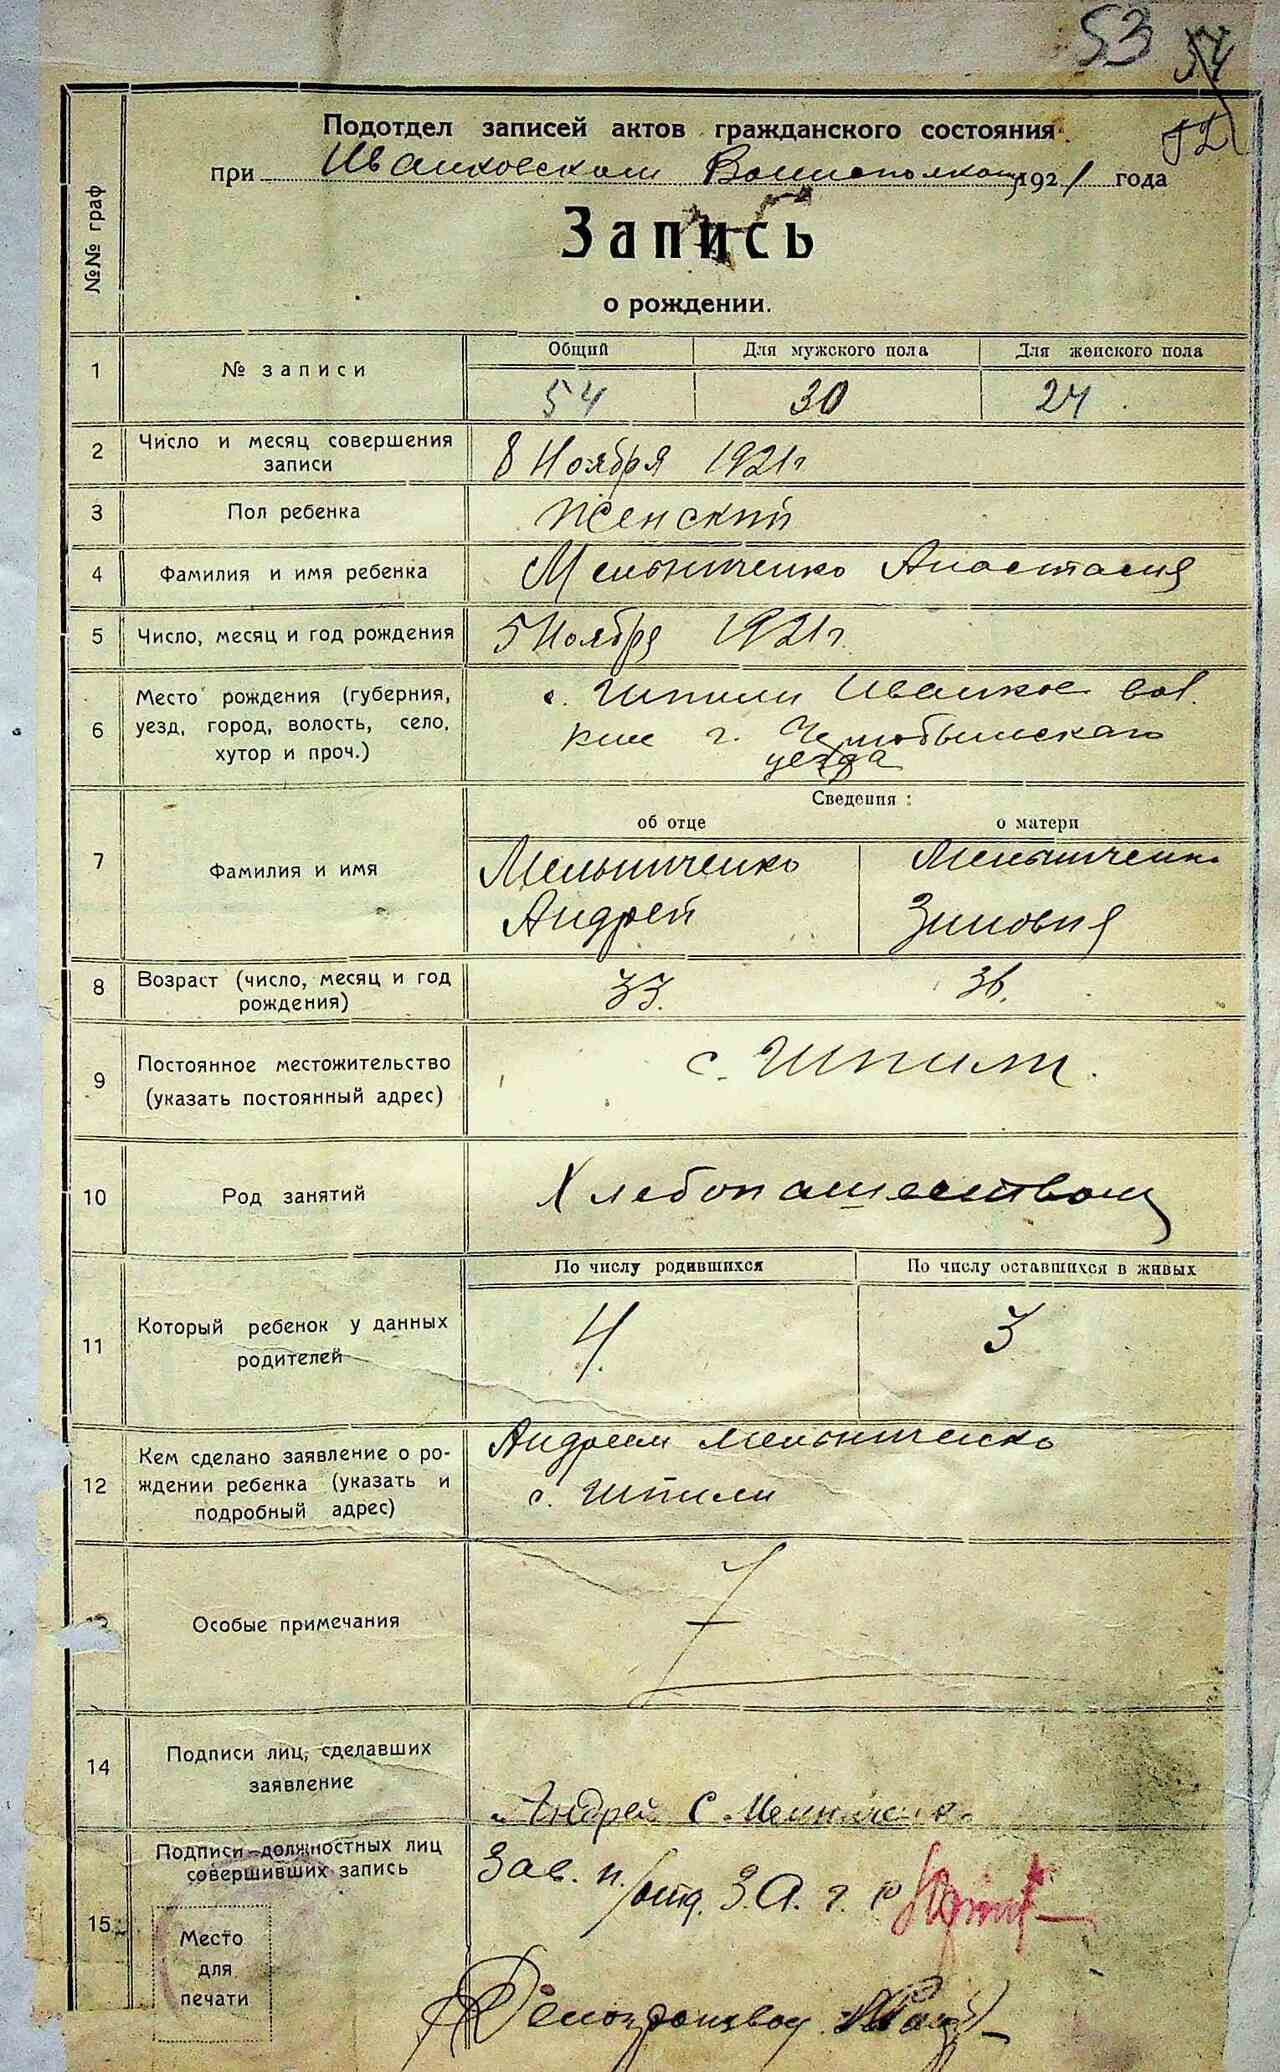 53 54
52
Подотдел записей актов гражданского состояния
при Иванковском Волисполкоме 1921 года
№№ граф
Запись
о рождении.
1 № записи Общий Для мужского пола Для женского пола
54 30 24
2 Число и месяц совершения записи 8 Ноября 1921г
3 Пол ребенка Женский
4 Фамилия и имя ребенка Мельниченко Анастасия
5 Число, месяц и год рождения 5 Ноября 1921г.
6 Место рождения (губерния, уезд, город, волость, село, хутор и проч.)
с. Шпили Иванков вол.
Кие г. Чернобыльскаго
уезда
Сведения:
об отце о матери
7 Фамилия и имя
Мельниченко Мельниченко
Андрей Зиновия
8 Возраст (число, месяц и год рождения) 33. 36.
9 Постоянное местожительство (указать постоянный адрес) с. Шпили.
10 Род занятий Хлебопашеством
11 Который ребенок у данных родителей
По числу родившихся По числу оставшихся в живых
4. 3
12 Кем сделано заявление о рождении ребенка (указать и подробный адрес)
Андреем Мельниченко
с. Шпили
13 Особые примечания
14 Подписи лиц, сделавших заявление
Андрей С
15 Подписи должностных лиц совершивших запись
Зав. п/отд. З.А.г.
Место
для
печати
Делопроизвод